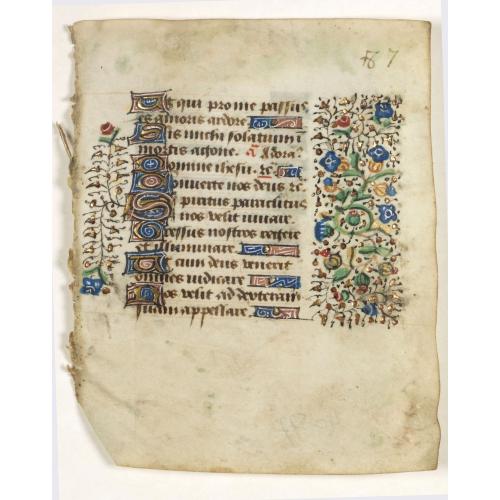 57
Et qui pro me passus
es amoris ardore
Sis michi solatium i
mortis agone. Adora
Domine ihesu. R
Converte nos deus
Spiritus paraclitus
nos velit iuvare
Gressus nostros regere
et illuminare
cum deus venerit
omnes iudicare
Nos velit ad dexteram
suam appellare.